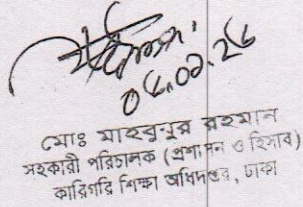 ০৫.০১.২৬
মোঃ মাহবুবুর রহমান
সহকারী পরিচালক (প্রশাসন ও হিসাব)
কারিগরি শিক্ষা অধিদপ্তর, ঢাকা